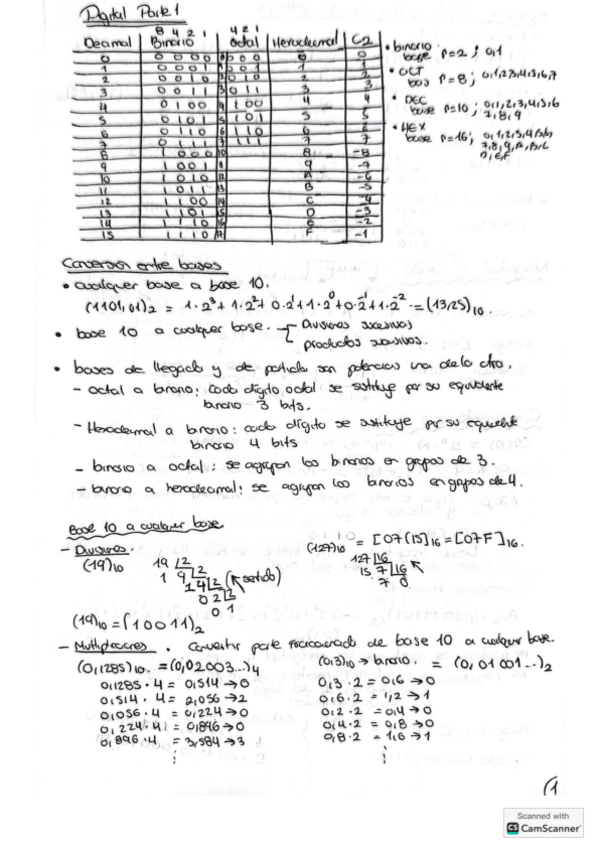 Digital Parte 1
8 4 2 1 4 2 1
Decimal Binario Octal Hexadecimal C2
0 0 0 0 0 0 0 0 0 0 0
1 0 0 0 1 1 0 0 1 1 1
2 0 0 1 0 2 0 1 0 2 2
3 0 0 1 1 3 0 1 1 3 3
4 0 1 0 0 4 1 0 0 4 4
5 0 1 0 1 5 1 0 1 5 5
6 0 1 1 0 6 1 1 0 6 6
7 0 1 1 1 7 1 1 1 7 7
8 1 0 0 0 10 8 -8
9 1 0 0 1 11 9 -7
10 1 0 1 0 12 A -6
11 1 0 1 1 13 B -5
12 1 1 0 0 14 C -4
13 1 1 0 1 15 D -3
14 1 1 1 0 16 E -2
15 1 1 1 0 17 F -1
• binario
base p=2 ; 0,1
• OCT
base p=8 ; 0,1,2,3,4,5,6,7
• DEC
base p=10 ; 0,1,2,3,4,5,6
7,8,9
• HEX
base p=16; 0,1,2,3,4,5,6,
7,8,9,A,B,C
D,E,F
Conversión entre bases
• cualquier base a base 10.
(1101,01)₂ = 1·2³+1·2²+0·2¹+1·2⁰+0·2⁻¹+1·2⁻² = (13,25)₁₀.
• base 10 a cualquier base. Divisiones sucesivas
productos sucesivos.
• bases de llegada y de partida son potencias una de la otra.
- octal a binario: Cada dígito octal se sustituye por su equivalente
binario 3 bits.
- Hexadecimal a binario: cada dígito se sustituye por su equivalente
binario 4 bits
- binario a octal: se agrupan los binarios en grupos de 3.
- binario a hexadecimal: se agrupan los binarios en grupos de 4.
Base 10 a cualquier base
- Divisiones.
(127)₁₀ = [07(15)]₁₆ = [07F]₁₆.
(19)₁₀ 19 2 127 16
1 9 2 15 7 16
1 4 2 (sentido) 7 0
0 2 2
0 1
(19)₁₀ = (10011)₂
- Multiplicaciones. Convertir parte fraccionada de base 10 a cualquier base.
(0,1285)₁₀ = (0,02003...)₄ (0,3)₁₀ → binario. = (0,01001...)₂
0,1285 · 4 = 0,514 → 0 0,3 · 2 = 0,6 → 0
0,514 · 4 = 2,056 → 2 0,6 · 2 = 1,2 → 1
0,056 · 4 = 0,224 → 0 0,2 · 2 = 0,4 → 0
0,224 · 4 = 0,896 → 0 0,4 · 2 = 0,8 → 0
0,896 · 4 = 3,584 → 3 0,8 · 2 = 1,6 → 1
(1
Scanned with
CS CamScanner